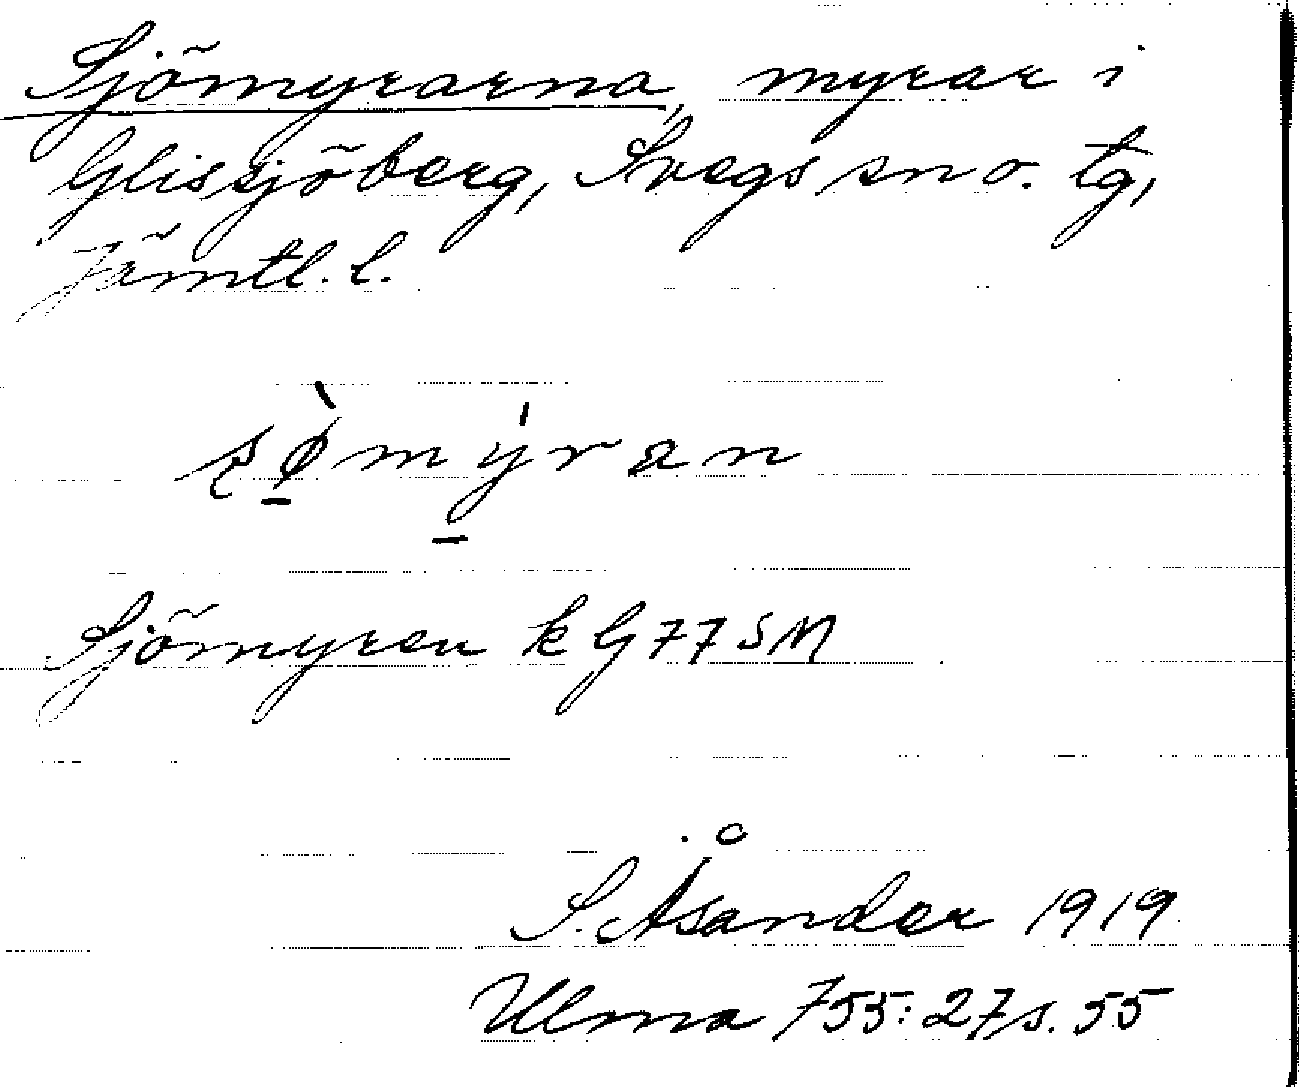 Sjömyrarna, myrar i
Glissjöberg, Svegs sn o. tg,
Jämtl. l.
sø̀mýran
Sjömyren k G 77 SM
S. Åsander 1919
Ulma 755:27 s. 55